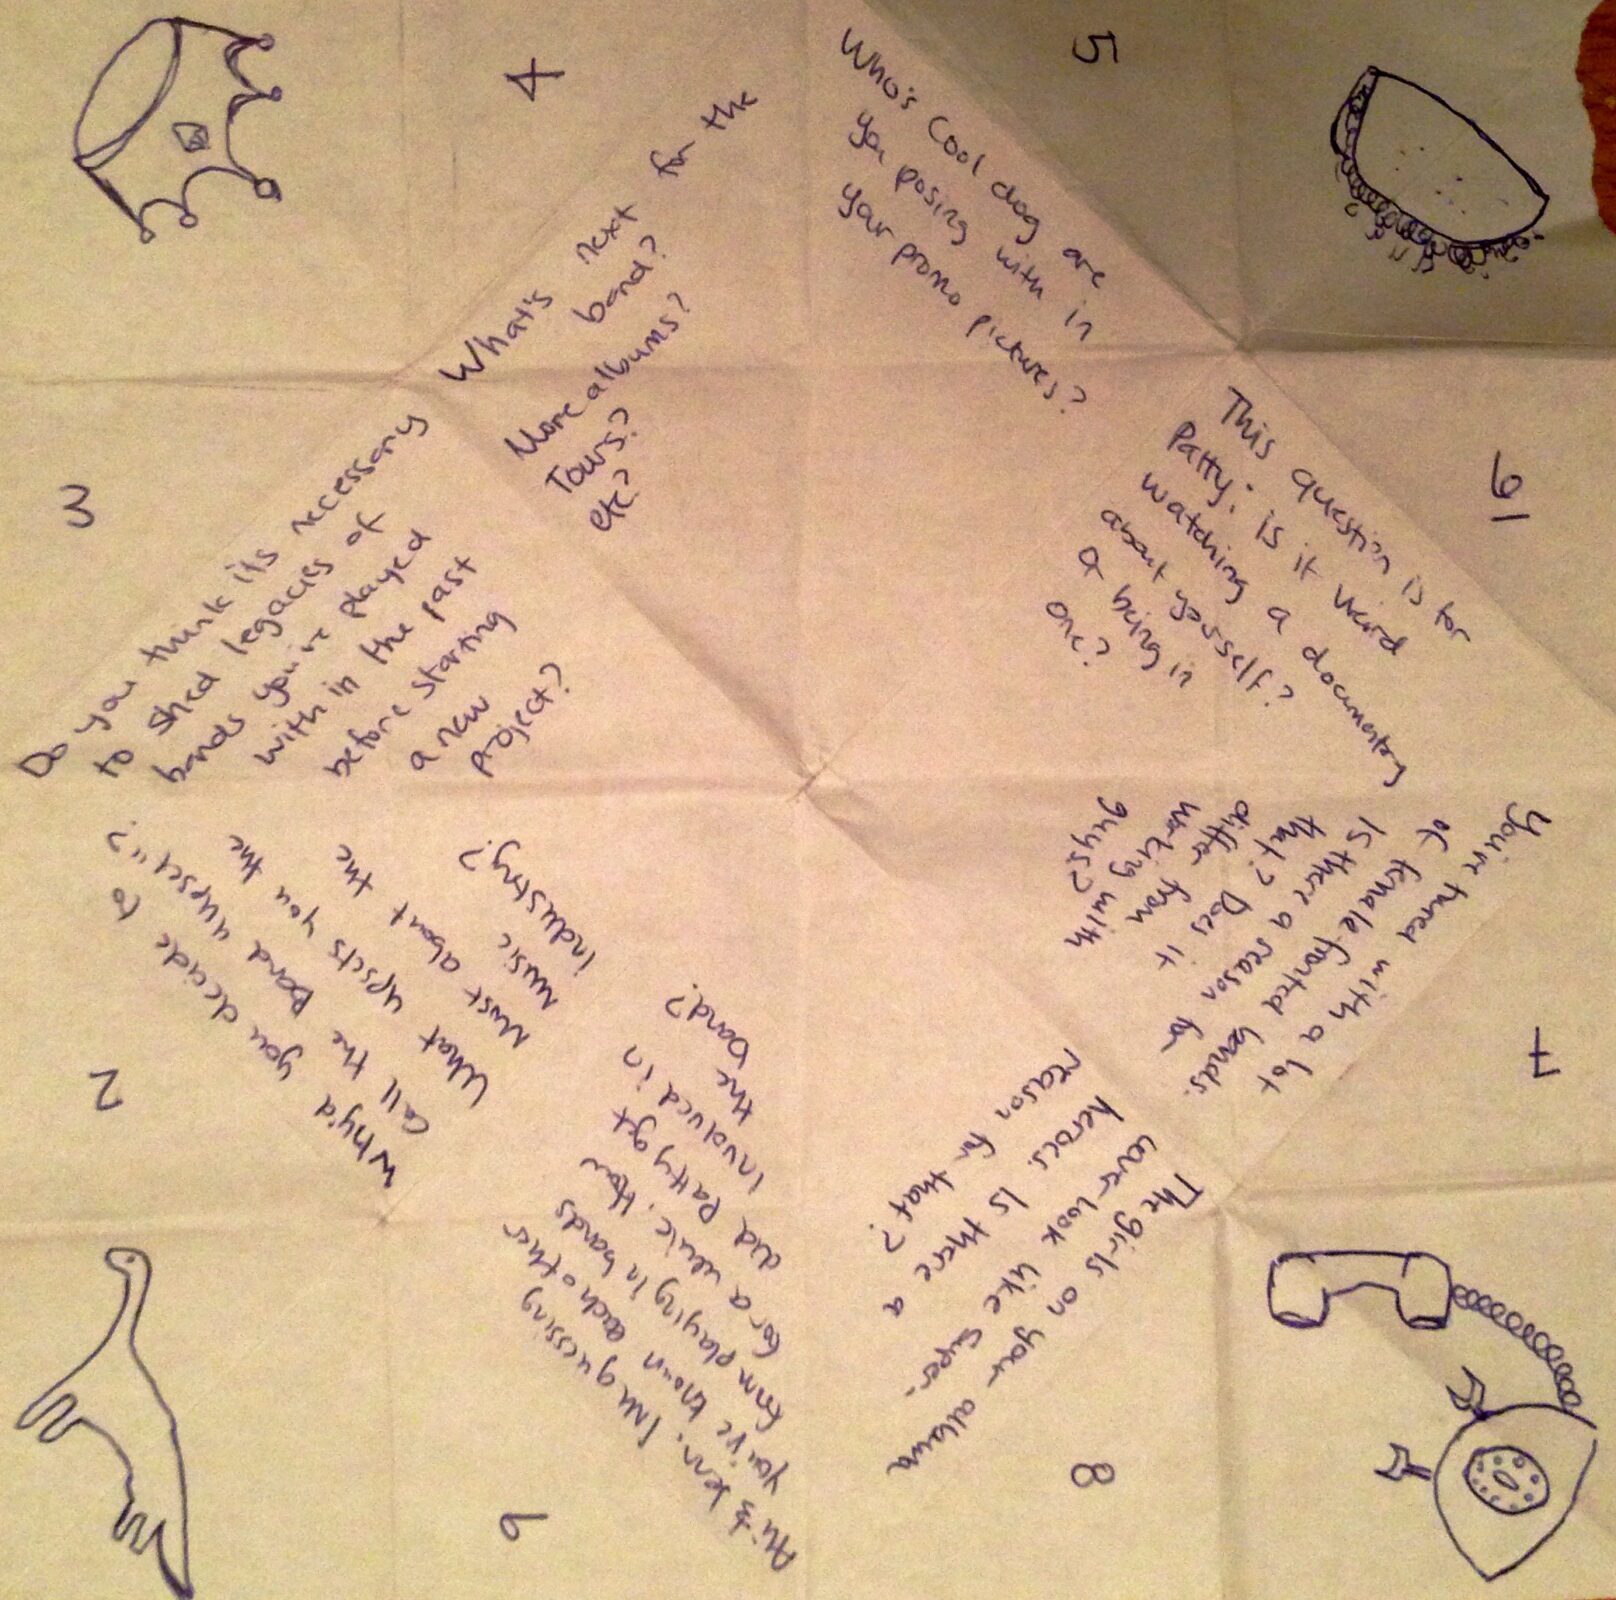 4
What's next for the
band?
More albums?
Tours?
etc?
5
Who's cool dog are
you posing with in
your promo pictures?
6
This question is for
Patty: is it weird
watching a documentary
about yourself?
Or being in
one?
7
You've toured with a lot
of female fronted bands.
Is there a reason for
that? Does it
differ from
working with
guys?
8
The girls on your album
cover look like super-
heroes. Is there a
reason for that?
9
Ali & Jenn, I'm guessing
you've known each other
from playing in bands
for a while. How
did Patty get
involved in
the band?
2
Why'd you decide to
call the Band "upset"?
What upsets you the
most about the
music
industry?
3
Do you think its necessary
to shed legacies of
bands you've played
with in the past
before starting
a new
project?